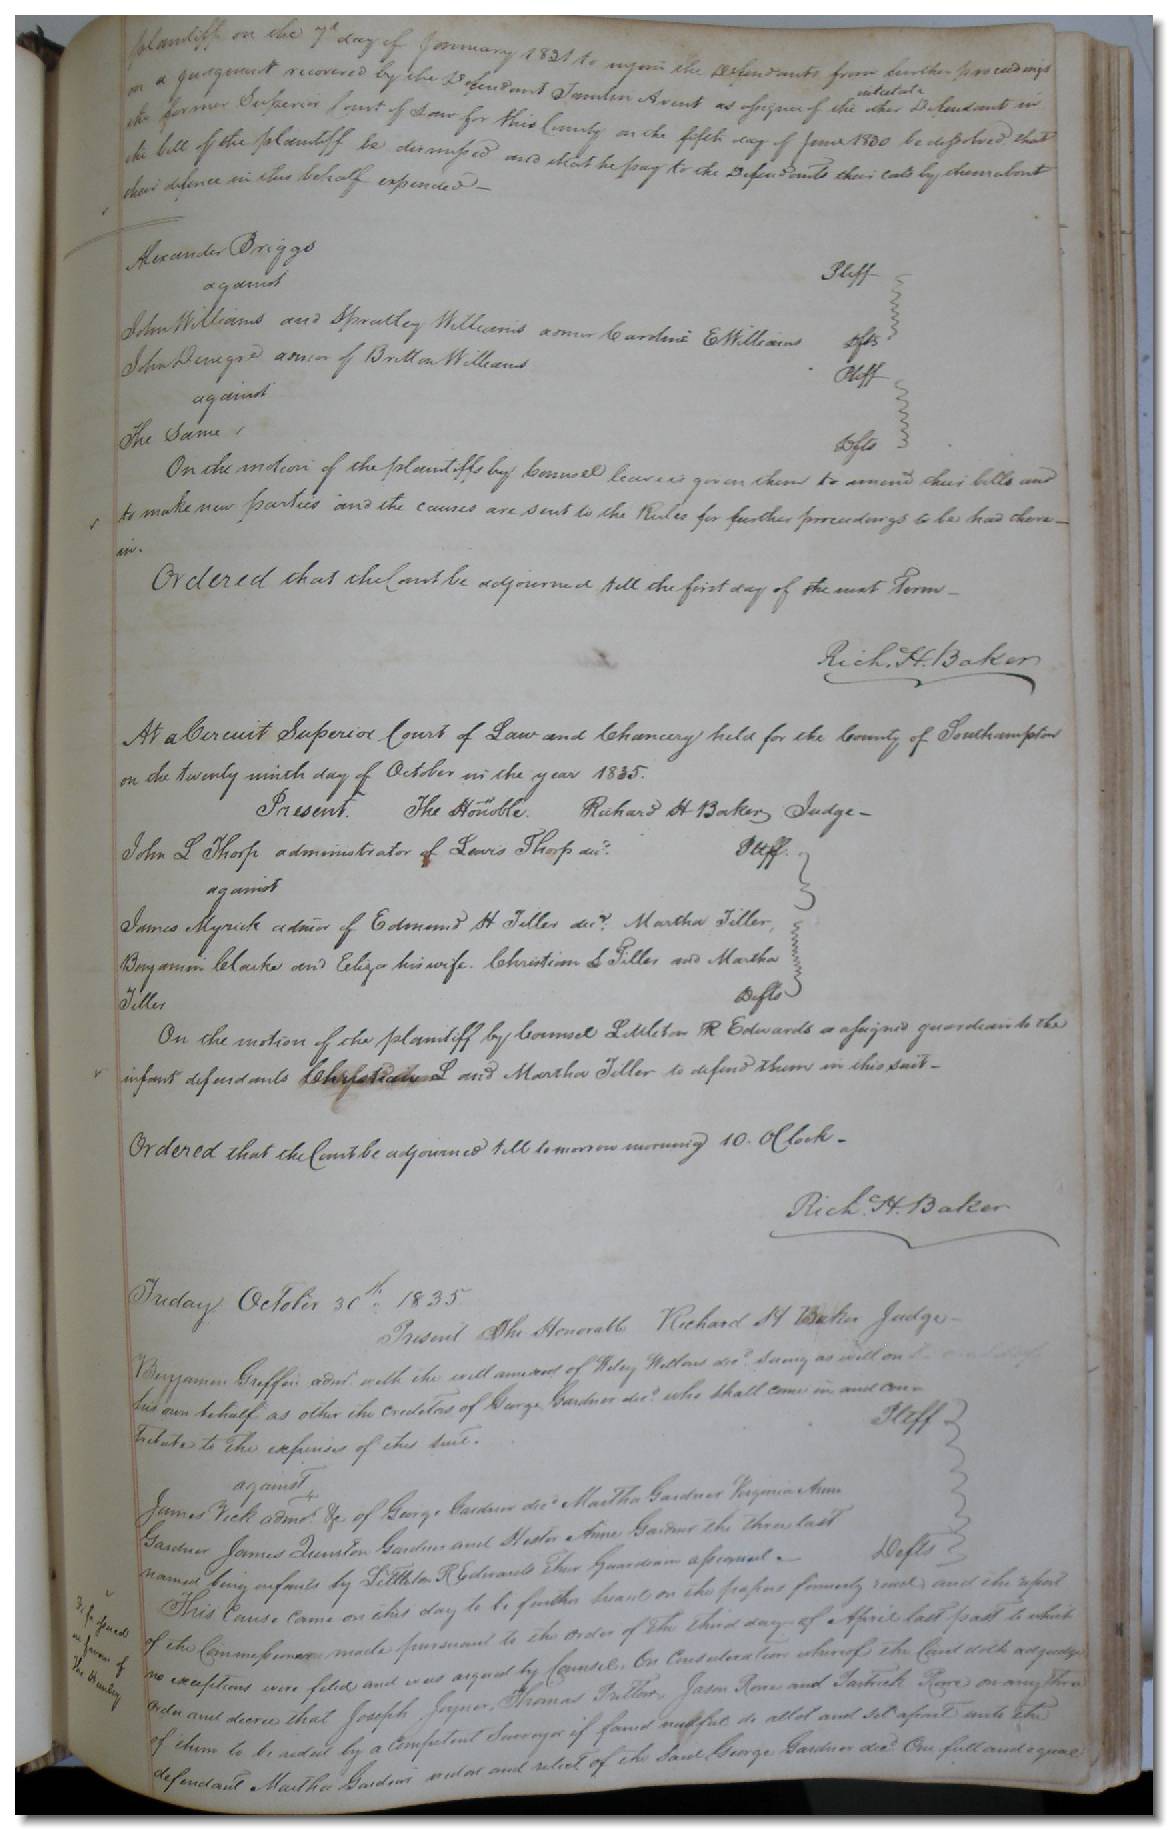 plaintiff on the 7th day of January 1831 to injoin the Defendants from further proceedings
on a judgment recovered by the Defendant Tamlin Avent as assignee of the other Defendant in
intestate
the former Superior Court of Law for this County on the fifth day of June 1830 be dissolved that
the bill of the plaintiff be dismissed and that he pay to the Defendants their costs by them about
their defence in this behalf expended—
Alexander Briggs Pltff
against
John Williams and Spratley Williams admor Caroline E Williams Dfts
John Denegre admor of Britton Williams Pltff
against
The Same Dfts
On the motion of the plaintiffs by Counsel leave is given them to amend their bills and
to make new parties and the causes are sent to the Rules for further proceedings to be had there—
in.
Ordered that the Court be adjourned till the first day of the next Term—
Rich. H. Baker
At a Circuit Superior Court of Law and Chancery held for the County of Southampton
on the twenty ninth day of October in the year 1835.
Present. The Honoble. Richard H Baker Judge—
John L Thorp administrator of Lewis Thorp decd. Pltff.
against
James Myrick admor of Edmund H Tiller decd. Martha Tiller,
Benjamin Clarke and Eliza his wife. Christian L Tiller and Martha
Tiller Defts
On the motion of the plaintiff by Counsel Littleton R Edwards is assigned guardian to the
infant defendants Christian L and Martha Tiller to defend them in this suit—
Ordered that the Court be adjourned till tomorrow morning 10. OClock—
Rich. H. Baker
Friday October 30th 1835
Present The Honorable Richard H Baker Judge—
Benjamin Griffin admr. with the will annexed of Wiley Wellons decd. suing as well on
his own behalf as other the creditors of George Gardner decd. who shall come in and con—
tribute to the expenses of this suit. Pltff
against
James Vick admr. &c of George Gardner decd Martha Gardner Virginia Anne
Gardner James Gardner and Hester Anne Gardner the three last
named being infants by Littleton R Edwards their Guardian assigned— Defts
This Cause came on this day to be further heard on the papers formerly read and the report
of the Commissioner made pursuant to the order of the third day of April last past to which
no exceptions were filed and was argued by Counsel. On Consideration whereof the Court doth adjudge
order and decree that Joseph Joyner, Thomas Pretlow, Jason Rowe and Patrick Rowe or any three
of them to be aided by a Competent Surveyor if found needful do allot and set apart unto the
defendant Martha Gardner widow and relict of the said George Gardner decd. One full and equal
issued
in favor of